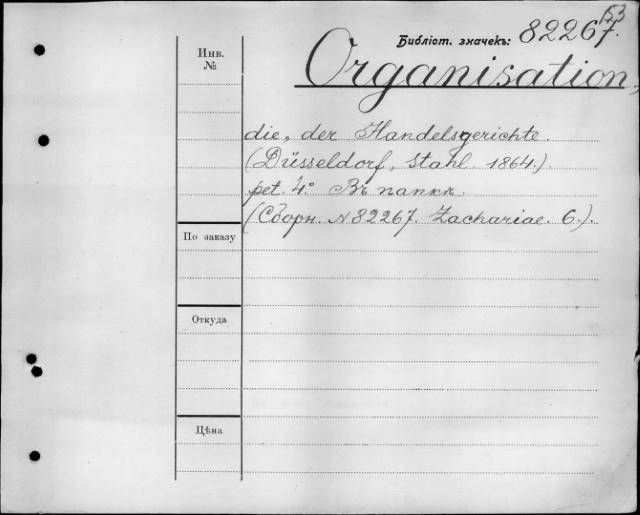 53
Библіот. значекъ: 82267.
Инв.
№
Organisation,
die, der Handelsgerichte.
(Düsseldorf, Stahl. 1864.)
pet. 4º. Въ папкѣ.
(Сборн. № 82267. Zachariae. 6.).
По заказу
Откуда
Цѣна